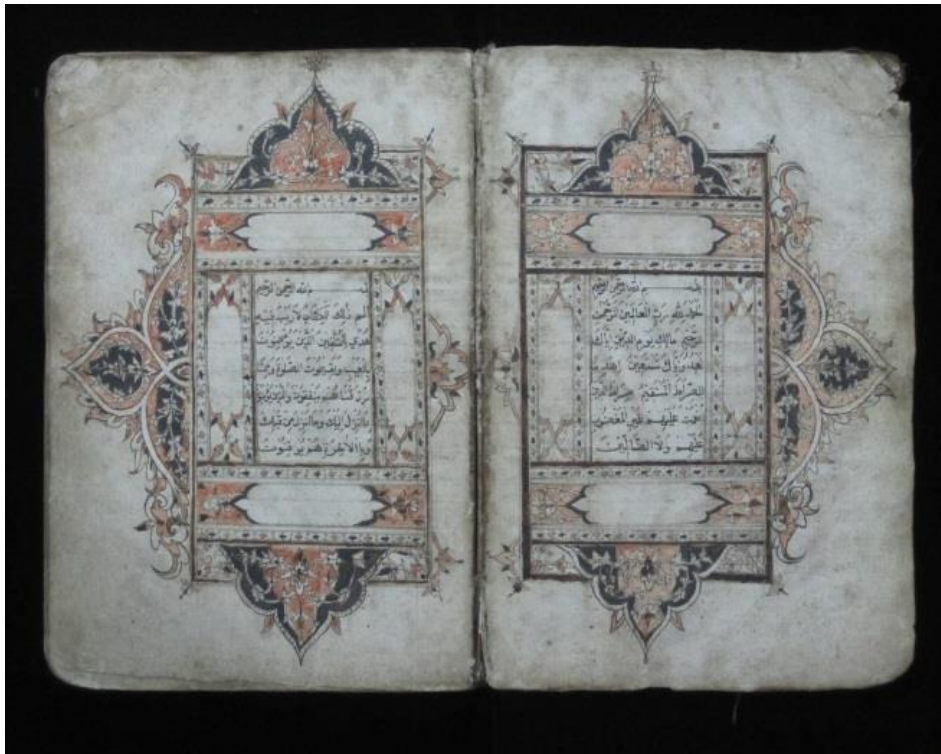 بسم الله الرحمن الرحيم
الحمد لله رب العالمين الرحمن
الرحيم مالك يوم الدين اياك
نعبد واياك نستعين اهدنا
الصراط المستقيم صراط الذين
انعمت عليهم غير المغضوب
عليهم ولا الضالين
بسم الله الرحمن الرحيم
الم ذلك الكتاب لا ريب فيه
هدى للمتقين الذين يؤمنون
بالغيب ويقيمون الصلوة ومما
رزقناهم ينفقون والذين يؤمنون
بما انزل اليك وما انزل من قبلك
وبالاخرة هم يوقنون